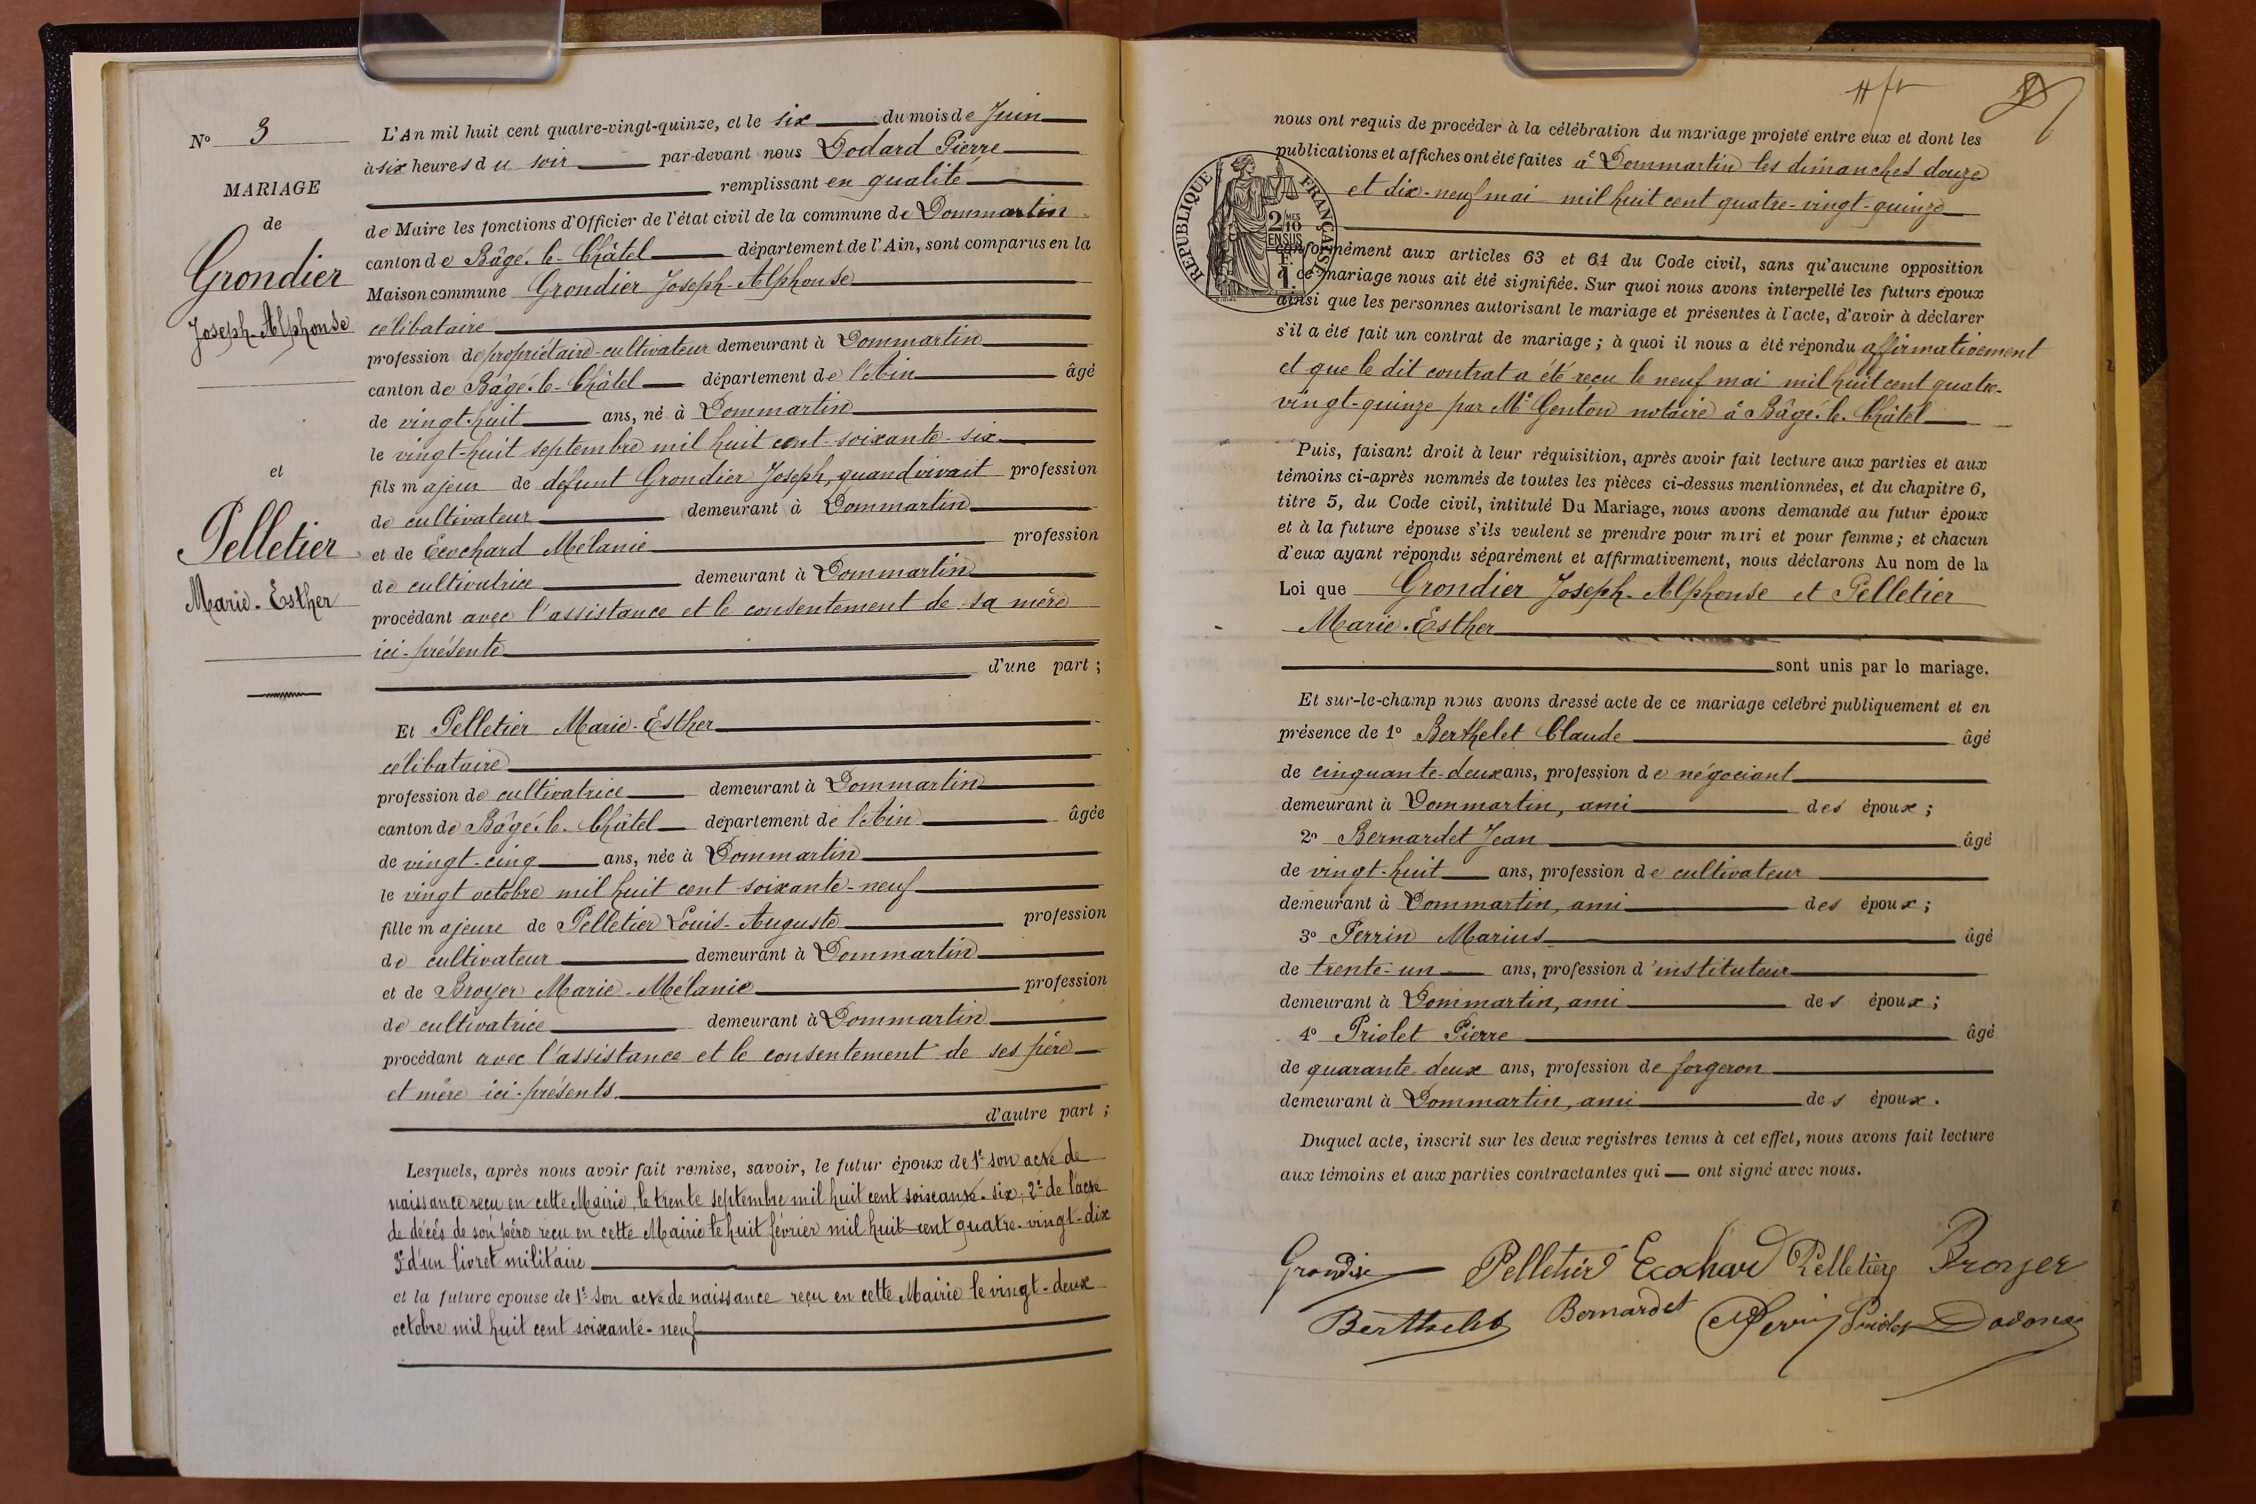 N° 3
MARIAGE
de
Grondier
Joseph-Alphonse
et
Pelletier
Marie-Esther
L'An mil huit cent quatre-vingt-quinze, et le six du mois de Juin
à six heures du soir par-devant nous Dodard Pierre
remplissant en qualité
de Maire les fonctions d'Officier de l'état civil de la commune de Dommartin
canton de Bâgé-le-Châtel département de l'Ain, sont comparus en la
Maison commune Grondier Joseph-Alphonse
célibataire
profession de propriétaire-cultivateur demeurant à Dommartin
canton de Bâgé-le-Châtel département de l'Ain âgé
de vingt-huit ans, né à Dommartin
le vingt-huit septembre mil huit cent soixante-six
fils majeur de défunt Grondier Joseph, quand vivait profession
de cultivateur demeurant à Dommartin
et de Ecochard Mélanie profession
de cultivatrice demeurant à Dommartin
procédant avec l'assistance et le consentement de sa mère
ici-présente
d'une part ;
Et Pelletier Marie-Esther
célibataire
profession de cultivatrice demeurant à Dommartin
canton de Bâgé-le-Châtel département de l'Ain âgée
de vingt-cinq ans, née à Dommartin
le vingt octobre mil huit cent soixante-neuf
fille majeure de Pelletier Louis-Auguste profession
de cultivateur demeurant à Dommartin
et de Broyer Marie-Mélanie profession
de cultivatrice demeurant à Dommartin
procédant avec l'assistance et le consentement de ses père
et mère ici-présents
d'autre part ;
Lesquels, après nous avoir fait remise, savoir, le futur époux de 1° son acte de
naissance reçu en cette Mairie, le trente septembre mil huit cent soixante-six, 2° de l'acte
de décès de son père reçu en cette Mairie le huit février mil huit cent quatre-vingt-dix
3° d'un livret militaire
et la future épouse de 1° son acte de naissance reçu en cette Mairie le vingt-deux
octobre mil huit cent soixante-neuf
nous ont requis de procéder à la célébration du mariage projeté entre eux et dont les
publications et affiches ont été faites à Dommartin les dimanches douze
et dix-neuf mai mil huit cent quatre-vingt-quinze
RÉPUBLIQUE FRANÇAISE
2/10
EN SUS
conformément aux articles 63 et 64 du Code civil, sans qu'aucune opposition
à ce mariage nous ait été signifiée. Sur quoi nous avons interpellé les futurs époux
ainsi que les personnes autorisant le mariage et présentes à l'acte, d'avoir à déclarer
s'il a été fait un contrat de mariage ; à quoi il nous a été répondu affirmativement
et que le dit contrat a été reçu le neuf mai mil huit cent quatre-
vingt-quinze par Me Genton notaire à Bâgé-le-Châtel
Puis, faisant droit à leur réquisition, après avoir fait lecture aux parties et aux
témoins ci-après nommés de toutes les pièces ci-dessus mentionnées, et du chapitre 6,
titre 5, du Code civil, intitulé Du Mariage, nous avons demandé au futur époux
et à la future épouse s'ils veulent se prendre pour mari et pour femme ; et chacun
d'eux ayant répondu séparément et affirmativement, nous déclarons Au nom de la
Loi que Grondier Joseph-Alphonse et Pelletier
Marie-Esther
sont unis par le mariage.
Et sur-le-champ nous avons dressé acte de ce mariage célébré publiquement et en
présence de 1° Berthelet Claude âgé
de cinquante-deux ans, profession de négociant
demeurant à Dommartin, ami des époux ;
2° Bernardet Jean âgé
de vingt-huit ans, profession de cultivateur
demeurant à Dommartin, ami des époux ;
3° Perrin Marius âgé
de trente-un ans, profession d'instituteur
demeurant à Dommartin, ami des époux ;
4° Priolet Pierre âgé
de quarante-deux ans, profession de forgeron
demeurant à Dommartin, ami des époux.
Duquel acte, inscrit sur les deux registres tenus à cet effet, nous avons fait lecture
aux témoins et aux parties contractantes qui ont signé avec nous.
Pelletier Ecochard Pelletier Broyer
Berthelet Bernardet Perrin Priolet